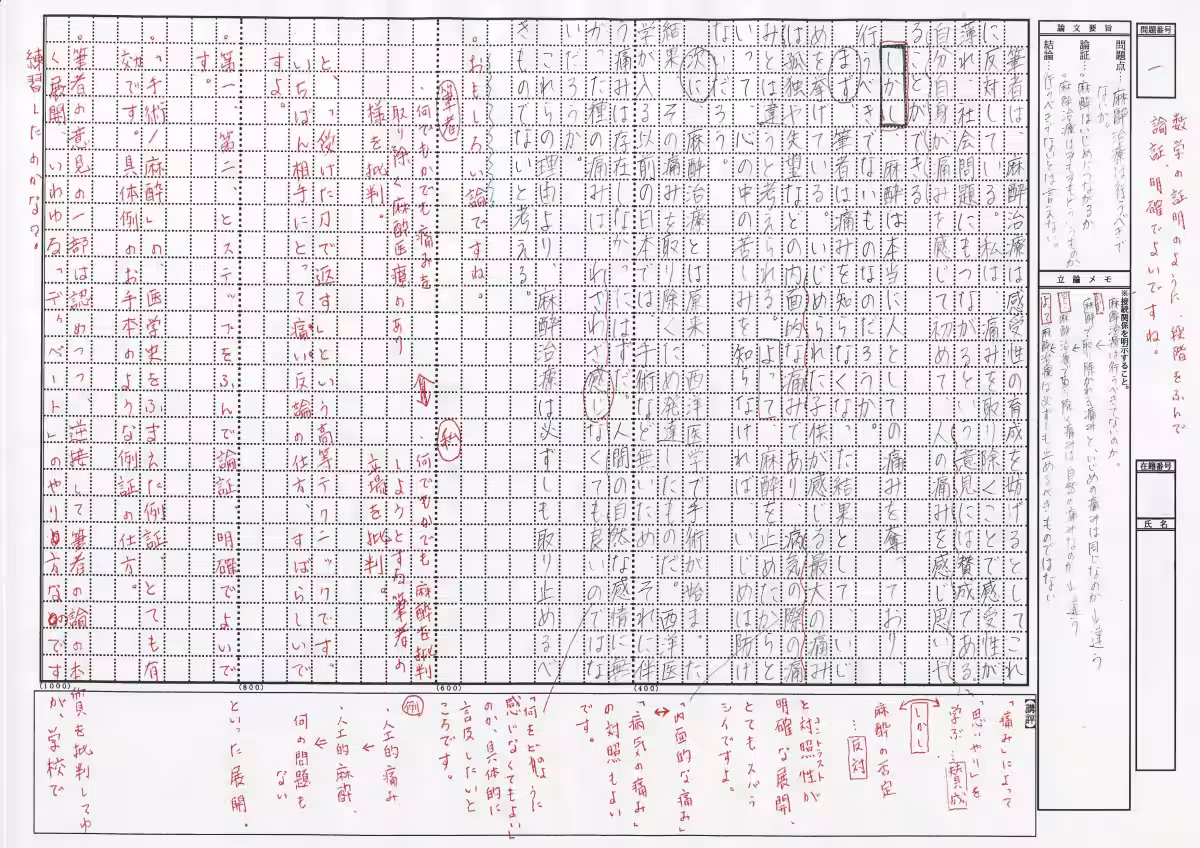 問題番号
一
数学の証明のように、段階をふんで
論証。明確でよいですね。
論文要旨
問題点…麻酔治療は行うべきで
ないか。
論証…麻酔はいじめにつながるか
結論
行うべきでないとは言えない。
立論メモ
※接続関係を明示すること。
麻酔治療は行うべきでないのか。
麻酔で取り除かれる痛みと、いじめの痛みは同じなのか → 違う
よって麻酔治療は必ずしも止めるべきものではない
在籍番号
氏名
筆者は、麻酔治療は感受性の育成を妨げるとしてこれ
に反対している。私は、痛みを取り除くことで感受性が
薄れ、社会問題にもつながるという意見には賛成である。
自分自身が痛みを感じて初めて、人の痛みを感じ思いや
ることができる。
しかし、麻酔は本当に人としての痛みを奪っており、
行うべきでないものなのだろうか。
まず、筆者は痛みを知らなくなった結果として、いじ
めを挙げている。いじめられた子供が感じる最大の痛み
は孤独や失望などの内面的な痛みであり、病気の際の痛
みとは違うと考えられる。よって、麻酔を止めたからと
いって、心の中の苦しみを知らなければ、いじめは防げ
ないだろう。
次に、麻酔治療とは原来、西洋医学で手術が始まった
結果、その痛みを取り除くため発達したものだ。西洋医
学が入る以前の日本では、手術など無いため、それに伴
う痛みは存在しなかったはずだ。人間の自然な感情に無
かった種の痛みは、わざわざ感じなくても良いのではな
いだろうか。
これらの理由より、麻酔治療は必ずしも取り止めるべ
きものでないと考える。
(400)
(600)
(800)
(1000)
。おもしろい論ですね。
筆者
・何でもかでも痛みを
取り除く麻酔医療のあり
様を批判。
私
・何でもかでも麻酔を批判
しようとする筆者の
立場を批判。
と、「後けた刀で返す」という高等テクニックです。
いちばん相手にとって“痛い”反論の仕方。すばらしいで
すよ。
。第一、第二、とステップをふんで論証。明確でよいで
す。
。「手術/麻酔」の、医学史をふまえた例証。とても有
効です。具体例のお手本のような例証の仕方。
。筆者の意見の一部は認めつつ、逆接して筆者の論の本質を批判してゆ
く展開、いわゆる「ディベート」のやり方なのですが、学校で
練習したのかな?。
【講評】
「痛み」によって
「思いやり」を
学ぶ…賛成
しかし
麻酔の否定
…反対
と対照性が
コントラスト
明確な展開、
とてもスバラ
シイですよ。
「内面的な痛み」
「病気の痛み」
の対照もよい
です。
「何をどのように
感じなくてもよい」
のか、具体的に
言及したいと
ころです。
例
・人工的痛み
・人工的麻酔、
何の問題も
ない
といった展開。